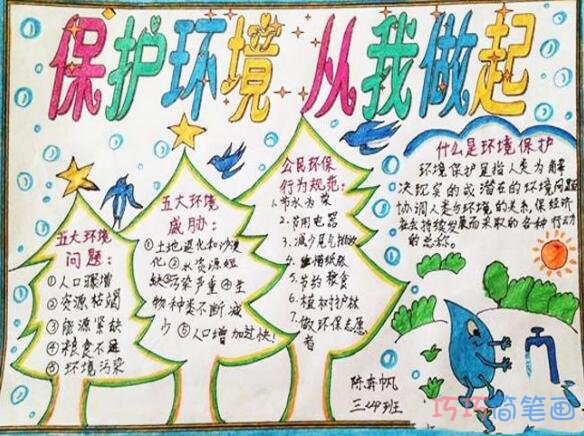 保护环境 从我做起
五大环境
问题：
①人口骤增
②资源枯竭
③能源紧缺
④粮食不足
⑤环境污染
五大环境
威胁：
①土地退化和沙漠
化②水资源短
缺③污染严重④生
物种类不断减
少⑤人口增加过快！
公民环保
行为规范：
1.节水为荣
2.节用电器
3.减少尾气排放
4.
5.节约粮食
6.植树护林
7.做环保志愿
者
什么是环境保护
环境保护是指人类为解
决现实的或潜在的环境问题
协调人类与环境的关系，保经济
社会持续发展而采取的各种行动
的总称。
陈奔帆
三（4）班
巧巧简笔画